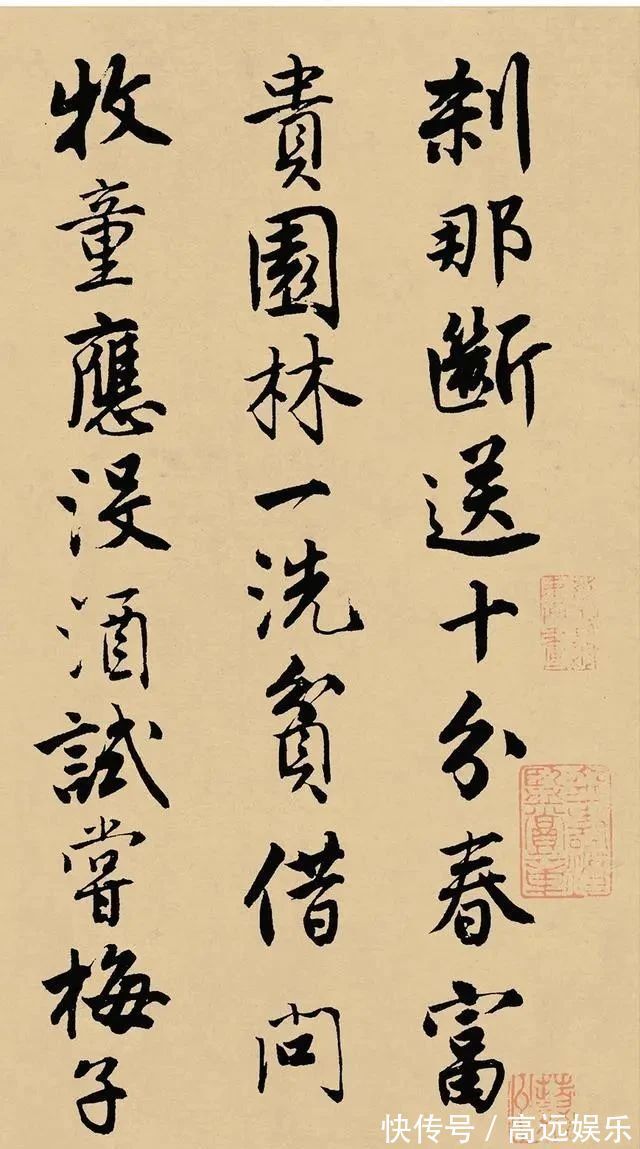 刹那斷送十分春富
貴園林一洗貧借問
牧童應没酒試嘗梅子
快传号 / 高远娱乐